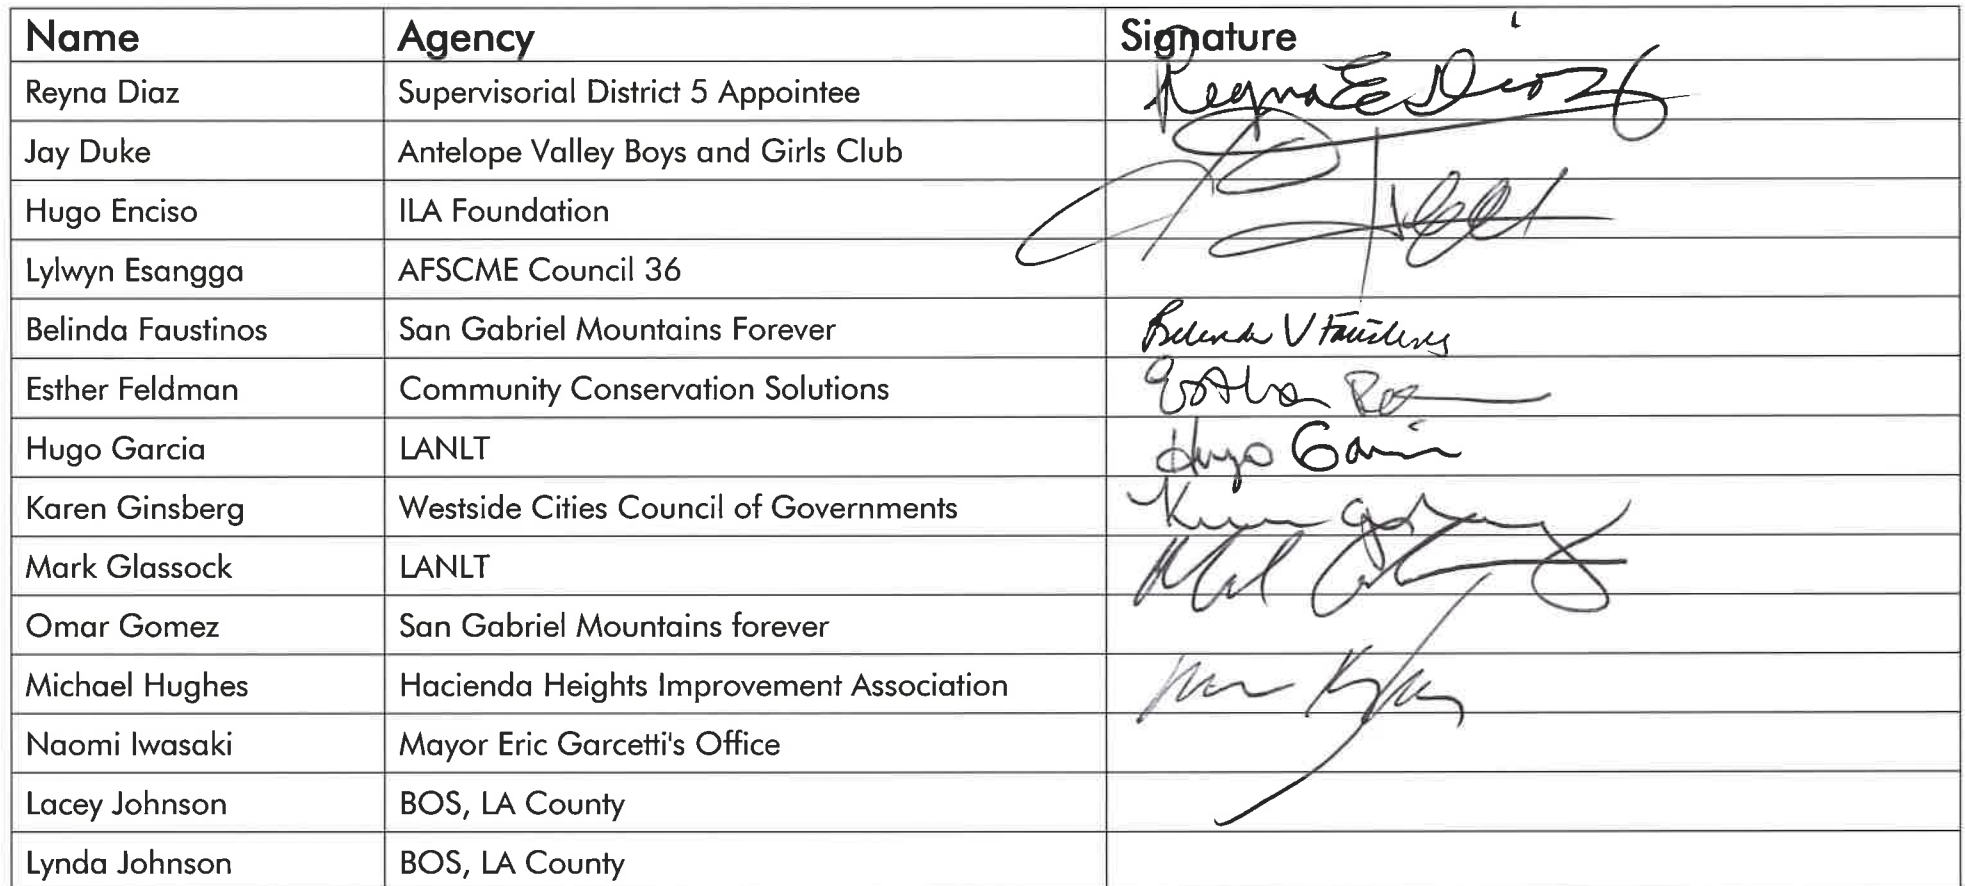 Name Agency Signature
Reyna Diaz Supervisorial District 5 Appointee Reyna E Diaz
Jay Duke Antelope Valley Boys and Girls Club
Hugo Enciso ILA Foundation
Lylwyn Esangga AFSCME Council 36
Belinda Faustinos San Gabriel Mountains Forever Belinda V Faustinos
Esther Feldman Community Conservation Solutions Esther
Hugo Garcia LANLT Hugo Garcia
Karen Ginsberg Westside Cities Council of Governments
Mark Glassock LANLT
Omar Gomez San Gabriel Mountains forever
Michael Hughes Hacienda Heights Improvement Association
Naomi Iwasaki Mayor Eric Garcetti's Office
Lacey Johnson BOS, LA County
Lynda Johnson BOS, LA County